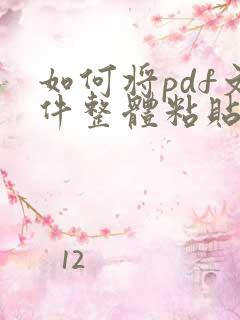 如何将pdf文
件整體粘貼
12